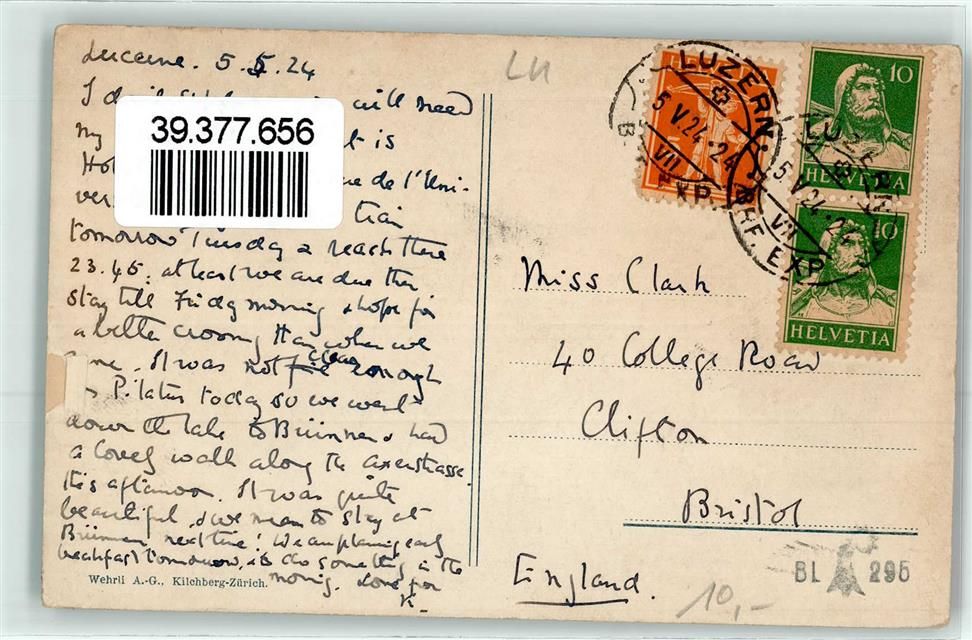 Lucerne. 5.5.24
I will need
my is
Hot de l'Uni-
ver train
tomorrow Tuesday & reach there
23.45. at least we are due then
stay till Friday morning & hope for
a better crossing than when we
came. It was not clear enough
Pilatus today so we went
down the lake to Brünnen & had
a lovely walk along the Axenstrasse
this afternoon. It was quite
beautiful, & we mean to stay at
Brünnen next time! We are planning early
breakfast tomorrow, to do something in the
morning. Love for
K.
Wehrli A.-G., Kilchberg-Zürich.
39.377.656
LU
LUZERN
5 V.24.24
VII
BHF. EXP.
10
HELVETIA
10
HELVETIA
Miss Clark
40 College Road
Clifton
Bristol
England.
10,-
BL 295